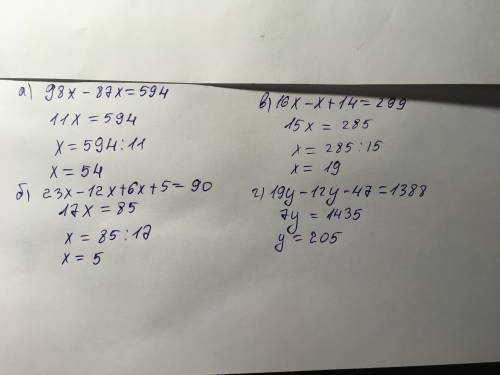 а) 98x - 87x = 594
11x = 594
x = 594 : 11
x = 54
б) 23x - 12x + 6x + 5 = 90
17x = 85
x = 85 : 17
x = 5
в) 16x - x + 14 = 299
15x = 285
x = 285 : 15
x = 19
г) 19y - 12y - 47 = 1388
7y = 1435
y = 205